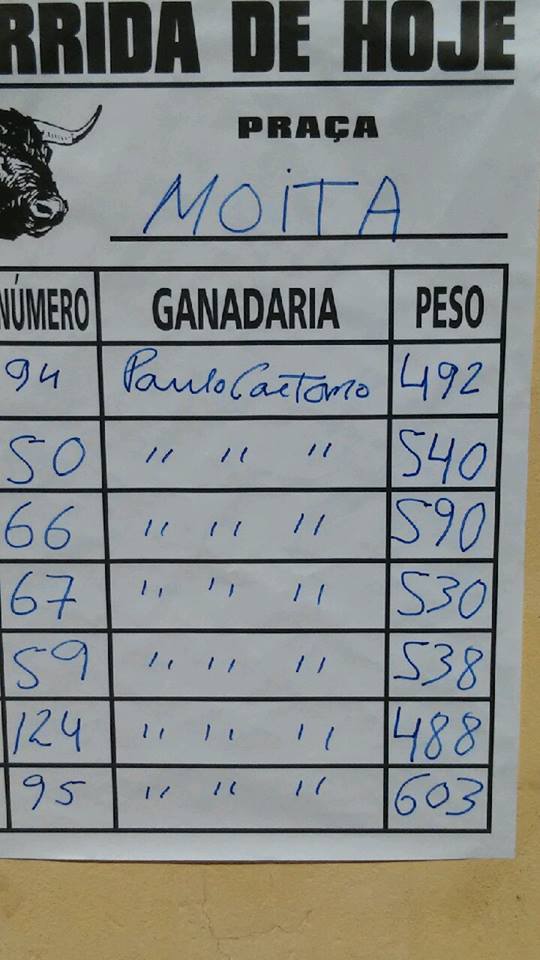 RRIDA DE HOJE
PRAÇA
MOITA
NÚMERO GANADARIA PESO
94 Paulo Caetano 492
50 " " " 540
66 " " " 590
67 " " " 530
59 " " " 538
124 " " " 488
95 " " " 603